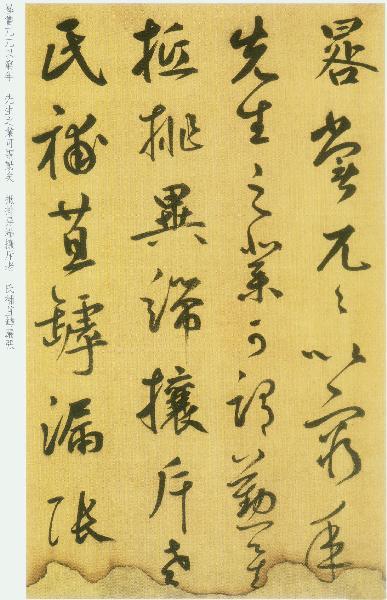 晷常兀兀以窮年
先生之業可謂勤矣
抵排異端攘斥老
氏補苴罅漏張
晷常兀兀以窮年 先生之業可謂勤矣 抵排異端攘斥老 氏補苴罅漏張